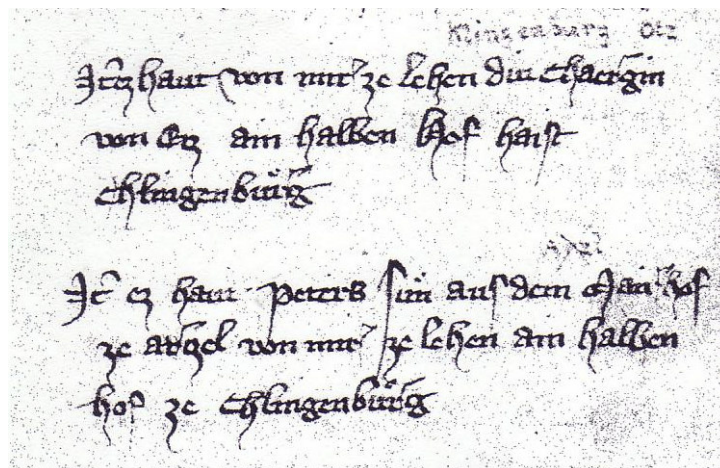 Klingenburg Otz
It ez haut von mir ze lehen diu Chaergin
von Ecz ain halben hof haist
Chlingenburg
Atzl
It ez haut Peters sun aus dem Mairhof
ze atzel von mir ze lehen ain halben
hof ze Chlingenburg